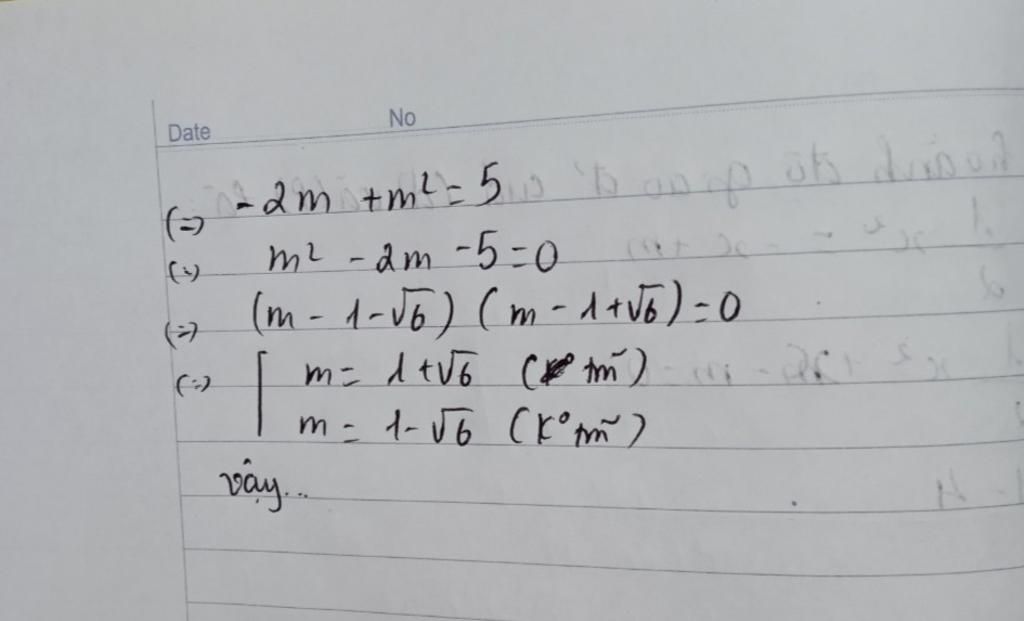 Date No
(=) -2m + m² = 5
(=) m² - 2m - 5 = 0
(=) (m - 1 - √6) (m - 1 + √6) = 0
(=) [ m = 1 + √6 (tm̃)
m = 1 - √6 (K° tm̃)
vậy...